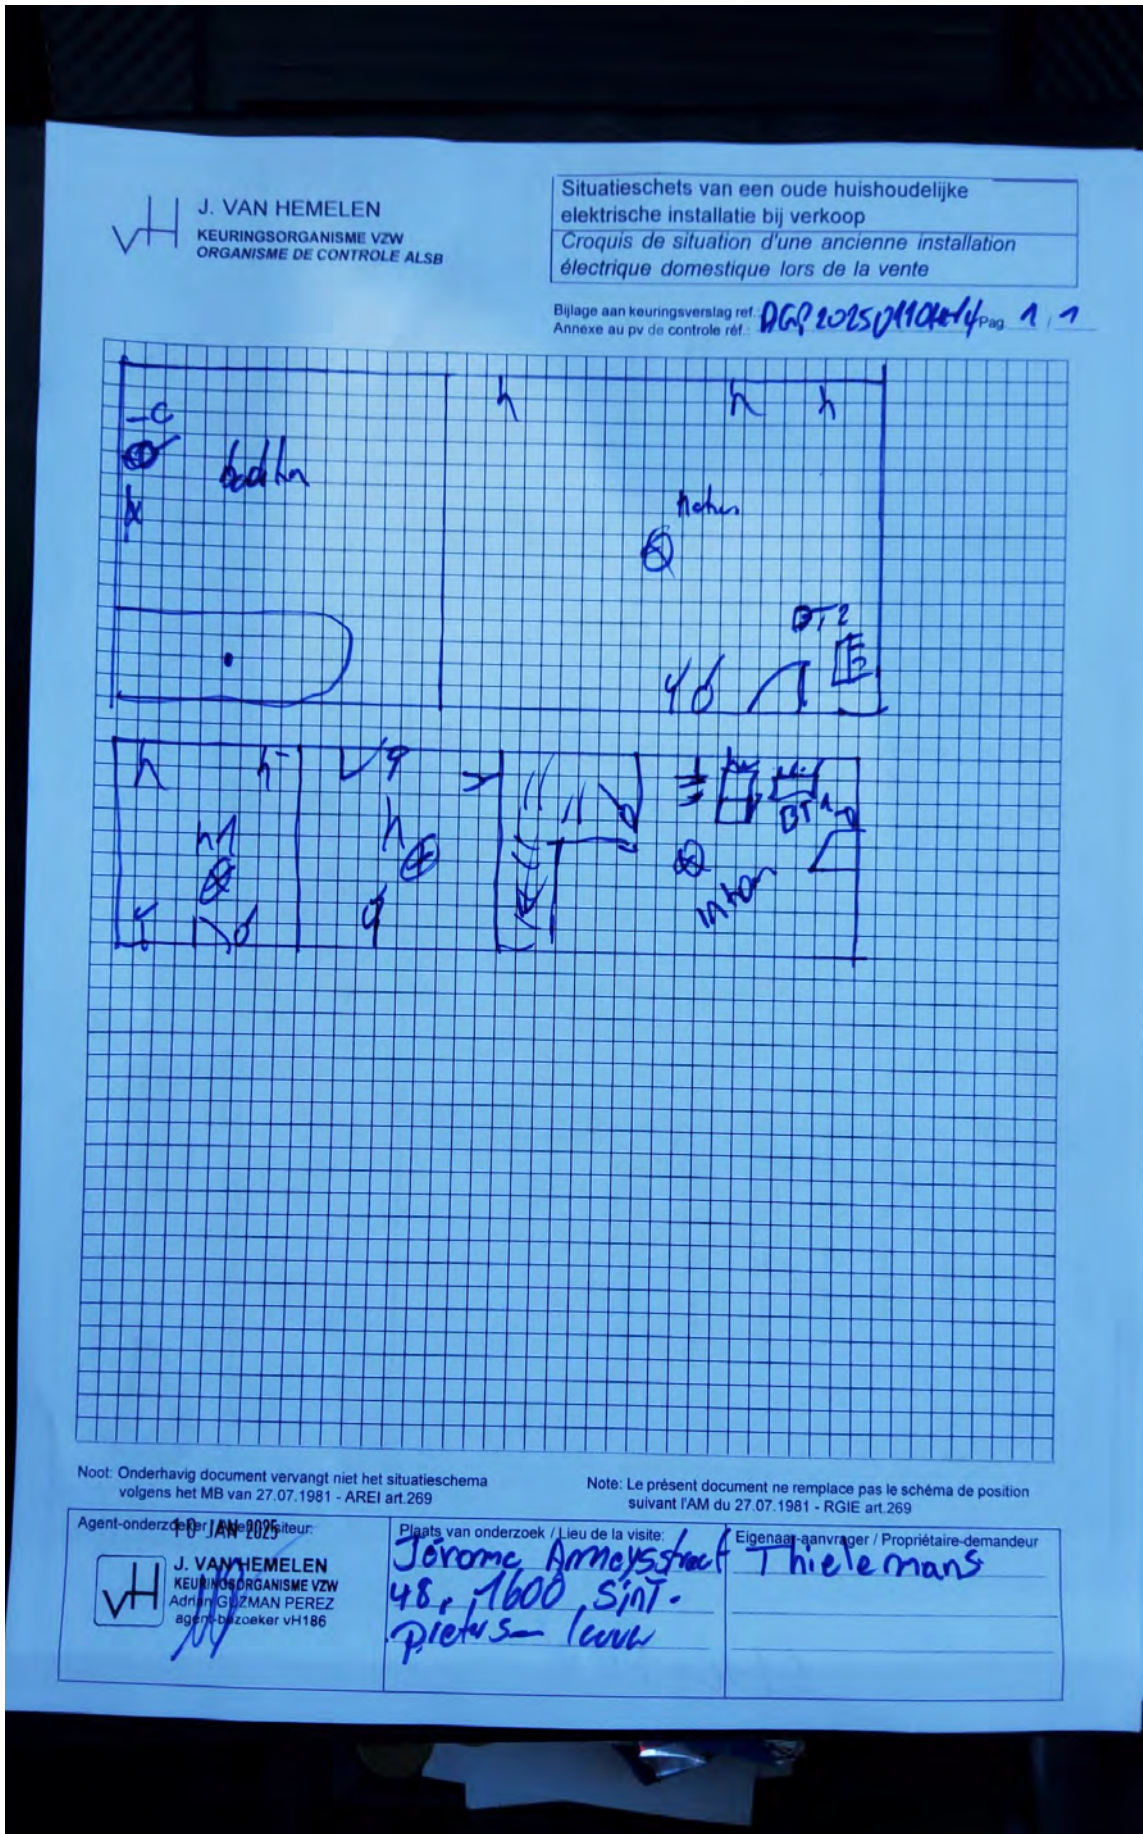 J. VAN HEMELEN
KEURINGSORGANISME VZW
ORGANISME DE CONTROLE ALSB
Situatieschets van een oude huishoudelijke
elektrische installatie bij verkoop
Croquis de situation d'une ancienne installation
électrique domestique lors de la vente
Bijlage aan keuringsverslag ref.:
Annexe au pv de controle réf.:
Pag 1 1
BT2
h1
BT1
Noot: Onderhavig document vervangt niet het situatieschema
volgens het MB van 27.07.1981 - AREI art.269
Note: Le présent document ne remplace pas le schéma de position
suivant l'AM du 27.07.1981 - RGIE art.269
10 JAN 2025
J. VAN HEMELEN
KEURINGSORGANISME VZW
Adrian GUZMAN PEREZ
agent-bezoeker vH186
Plaats van onderzoek / Lieu de la visite:
Jérome
48, 1600 Sint-
Pieters-
Eigenaar-aanvrager / Propriétaire-demandeur
Thielemans